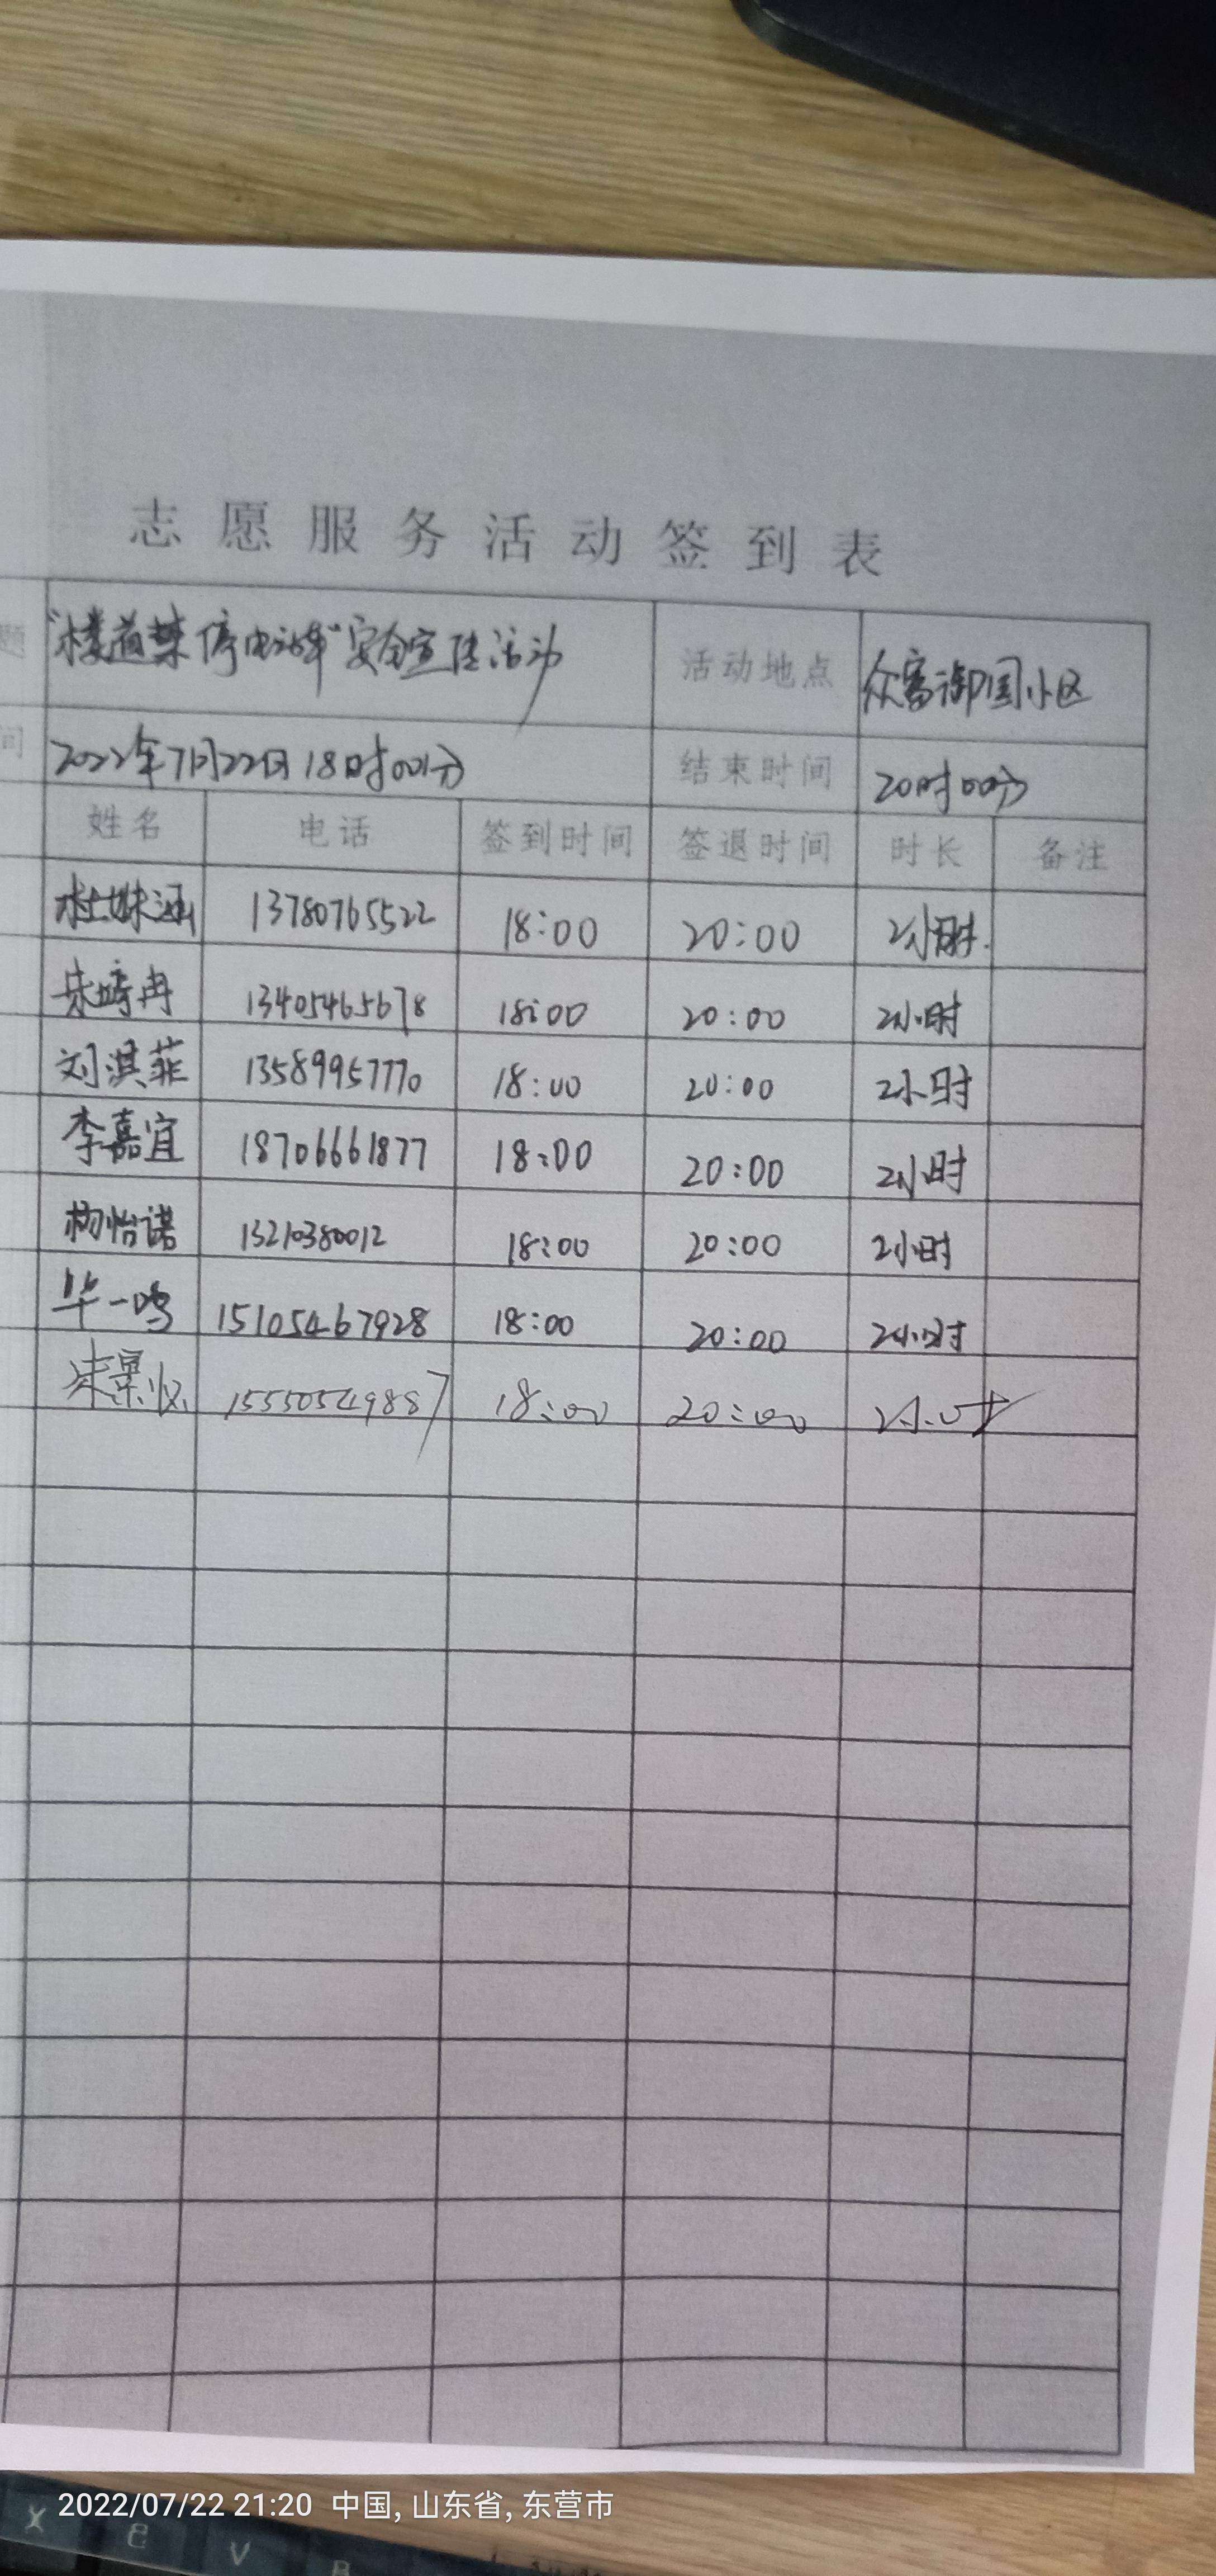 志愿服务活动签到表
题 "楼道禁停电动车"安全宣传活动 活动地点 众富御园小区
间 2022年7月22日18时00分 结束时间 20时00分
姓名 电话 签到时间 签退时间 时长 备注
杜姝涵 13780765522 18:00 20:00 2小时.
朱崎冉 13405465678 18:00 20:00 2小时
刘淇菲 13589957770 18:00 20:00 2小时
李嘉宜 18706661877 18:00 20:00 2小时
杨怡诺 13210380012 18:00 20:00 2小时
毕一鸣 15105467928 18:00 20:00 2小时
15550549887 18:00 20:00 2小时
2022/07/22 21:20 中国, 山东省, 东营市
X B V B